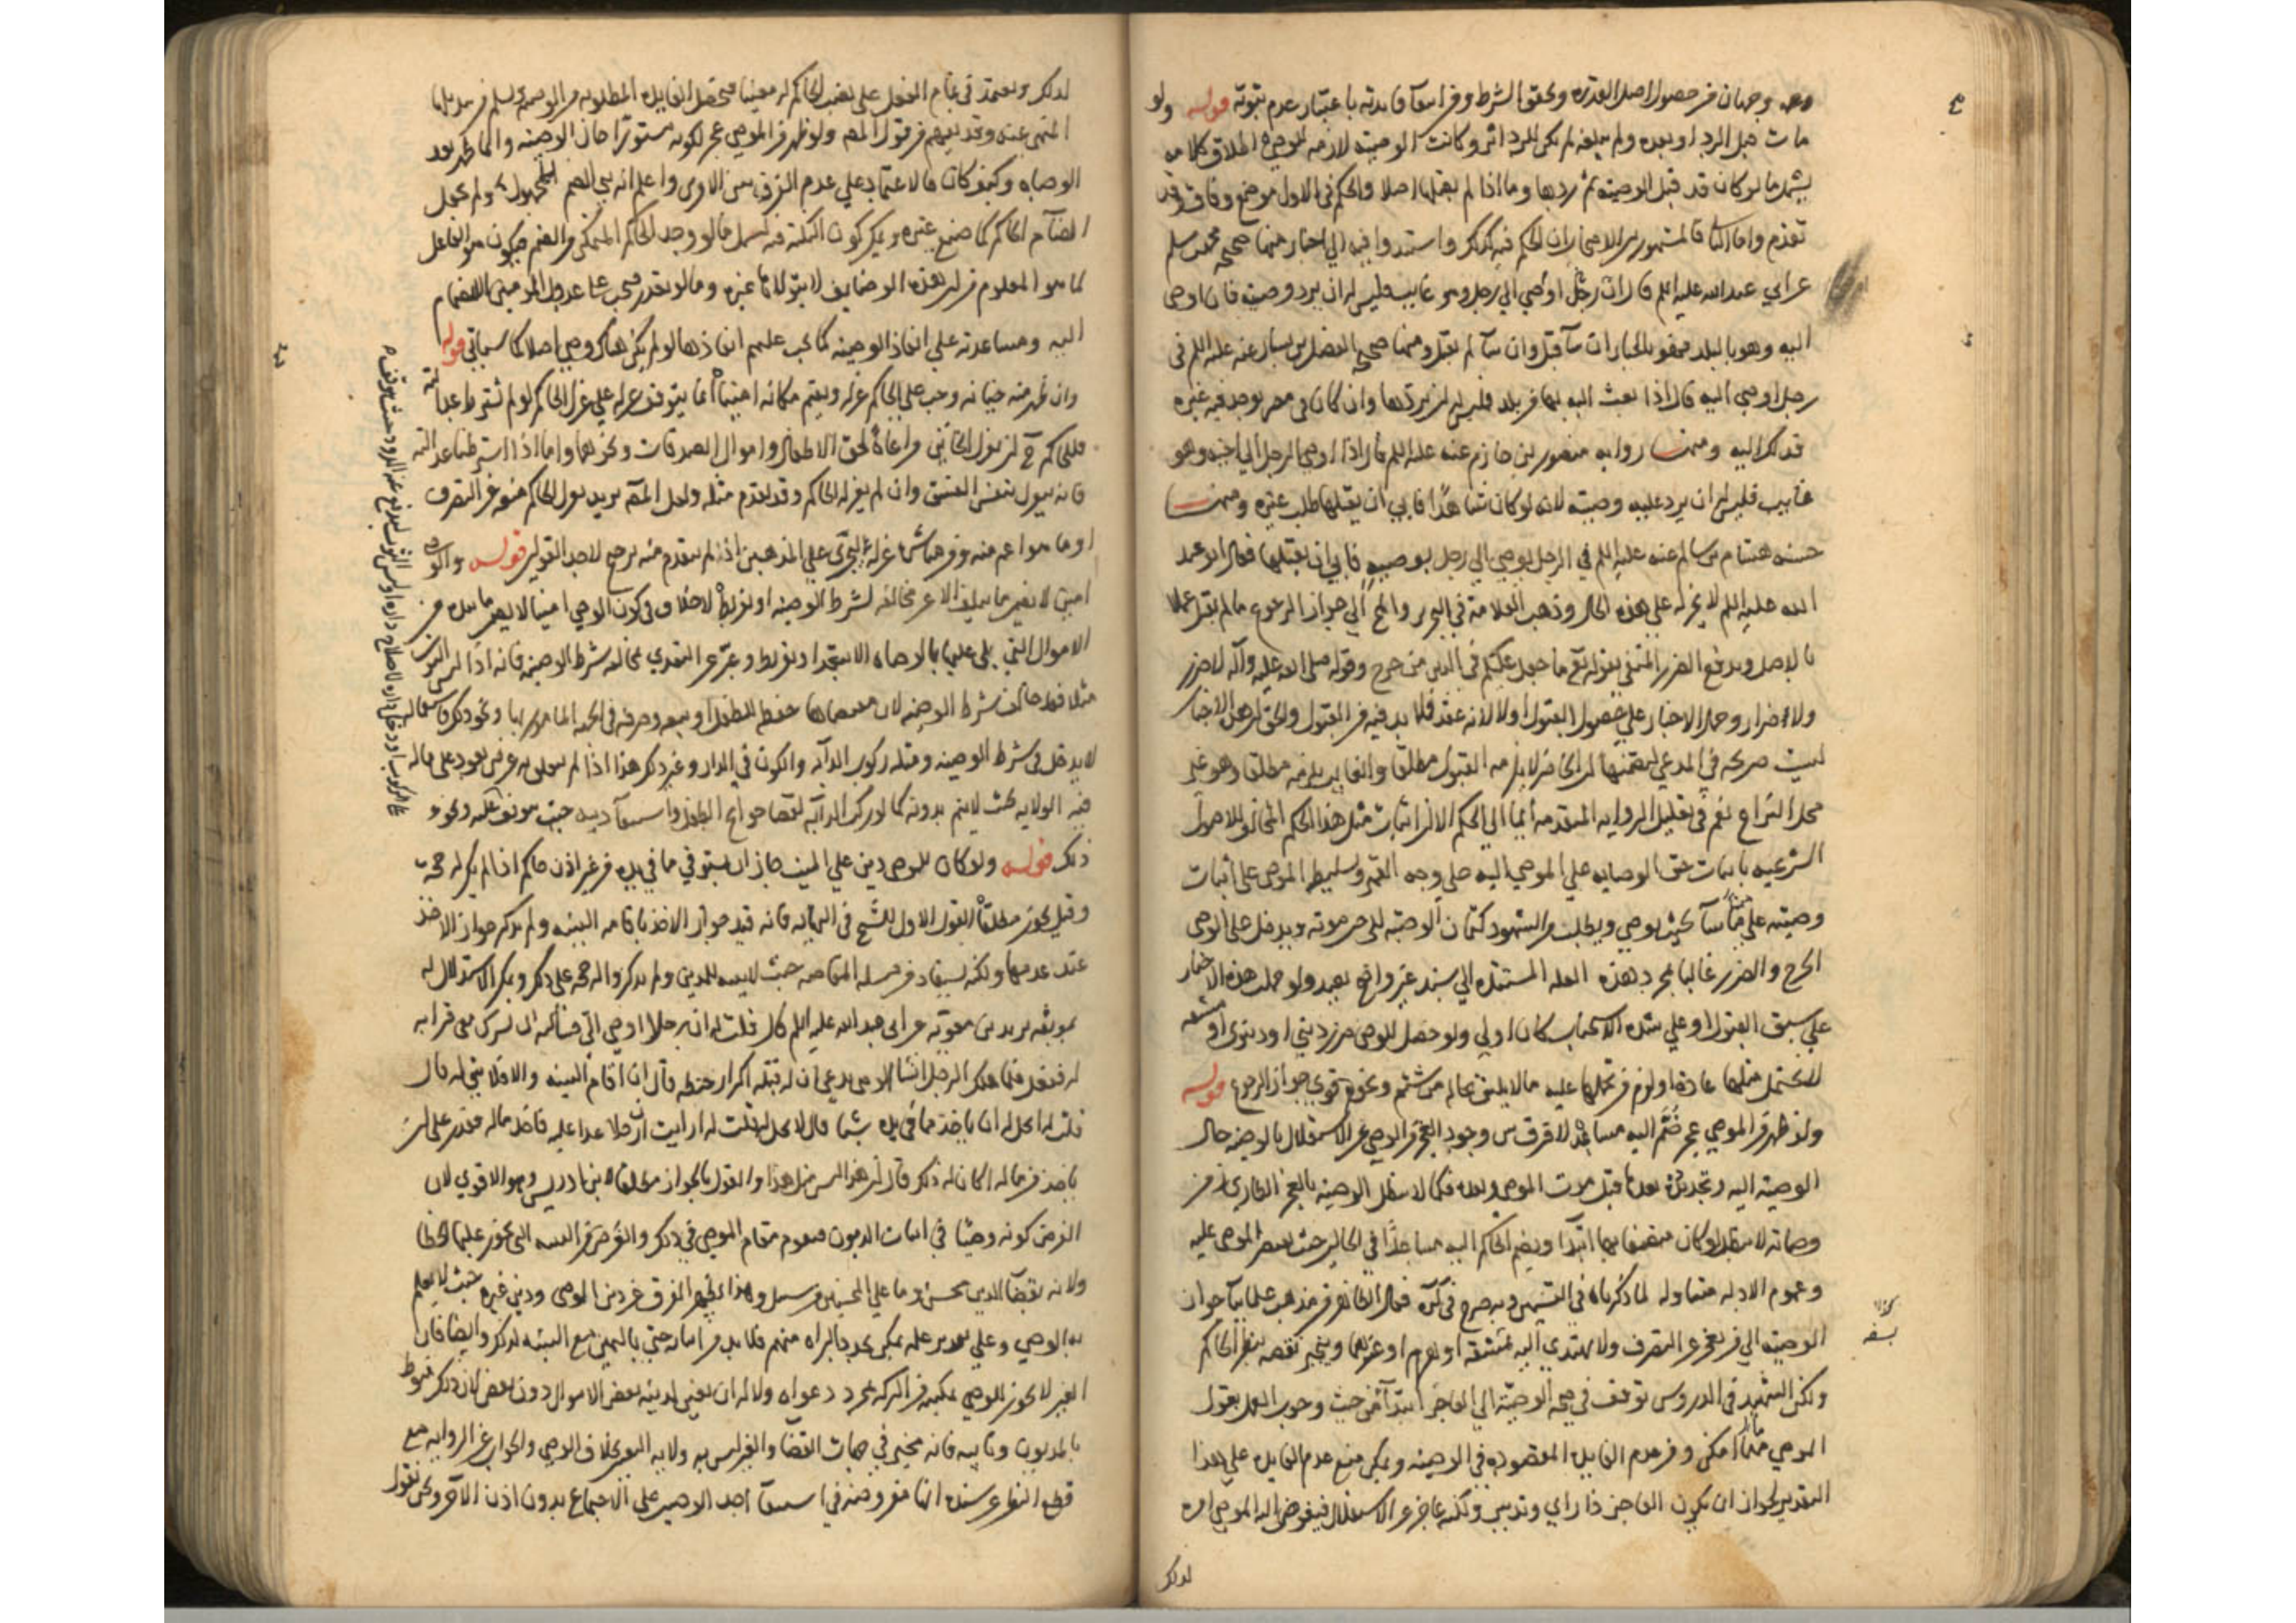 وجهان من حصول اصل القدرة وتحقق الشرط ومن انتفآ فايدته باعتبار عدم ثبوته قوله ولو
مات قبل الرد او بعده ولم يبلغه لم يكن للرد اثر وكانت الوصية لازمة للوصي اطلاق كلامه
يشمل ما لو كان قد قبل الوصية ثم ردها وما اذا لم يقبلها اصلا والحكم في الاول موضع وفاق وقد
تقدم واما الثاني فالمشهور بين الاصحاب ان الحكم فيه كذلك واستندوا فيه الي اخبار منها صحيحة محمد بن مسلم
عن ابي عبد الله عليه السلم قال ان رجل اوصي الي رجل وهو غايب فليس له ان يرد وصيته فان اوصي
اليه وهو بالبلد فهو بالخيار ان شآ قبل وان شآ لم يقبل ومنها صحيح الفضيل بن يسار عنه عليه السلم في
رجل اوصي اليه قال اذا بعث اليه بها من بلد فليس له ان يردها وان كان في مصر يوجد فيه غيره
فذلك اليه ومنها رواية منصور بن حازم عنه عليه السلم قال اذا اوصي الرجل الي اخيه وهو
غايب فليس له ان يرد عليه وصيته لانه لو كان شاهدًا فابي ان يقبلها طلب غيره ومنها
حسنة هشام بن سالم عنه عليه السلم في الرجل يوصي الي رجل بوصية فابي ان يقبلها فقال ابو عبد
الله عليه السلم لا يخذله علي هذه الحال وذهب العلامة في التحرير والمخ الي جواز الرجوع ما لم يقبل عملا
بالاصل وبدفع الضرر المنفي بقوله تع ما جعل عليكم في الدين من حرج وقوله صلي الله عليه وآله لا ضرر
ولا اضرار وحمل الاخبار علي حصول القبول اولا لانه عقد فلا بد فيه من القبول والحق ان هذه الاخبار
ليست صريحة في المدعي لتضمنها ان الحاضر لا يلزمه القبول مطلقا والغايب يلزمه مطلقا وهو غير
محل النزاع نعم في تعليل الرواية المتقدمة ايما الي الحكم الا ان اثبات مثل هذا الحكم المخالف للاصول
الشرعية باثبات حق الوصاية علي الموصي اليه علي وجه القهر وتسليط الموصي علي اثبات
وصيته علي من شآ بحيث يوصي ويطلب من الشهود كتمان الوصية الي حين موته ويدخل علي الوصي
الحرج والضرر غالبا بمجرد هذه العلة المستندة الي سند غير واضح بعيد ولو حملت هذه الاخبار
علي سبق القبول او علي شدة الاستحباب كان اولي ولو حصل للوصي ضرر ديني او دنيوي او مشقة
لا يتحمل مثلها عادة او لزم من تحملها عليه ما لا يليق بحاله من شتم ونحوه قوي جواز الرجوع قوله
ولو ظهر من الموصي عجز ضم اليه مساعد لا فرق بين وجود العجز من الوصي عن الاستقلال بالوصية حال
الوصية اليه وتجدده بعدها قبل موت الموصي وبعده فكما لا تبطل الوصية بالعجز الطاري فمن
وصاته لا تبطل لو كان متصفا بها ابتدآ ويضم الحاكم اليه مساعدًا في الحالين حيث يقصر الموصي عليه
وعموم الادلة متناولة لما ذكرناه في القسمين وبه صرح في كره فقال الظاهر من مذهب علمآينا جواز
الوصية الي من يعجز عن التصرف ولا يهتدي اليه لمشقة او لهرم او غيرهما وينجبر نقصه بنظر الحاكم
ولكن الشهيد في الدروس توقف في صحة الوصية الي العاجز ابتدآ من حيث وجوب العمل بقول
الموصي ما امكن ومن عدم الفايدة المقصودة في الوصية ويمكن منع عدم الفايدة علي هذا
التقدير لجواز ان يكون العاجز ذا راي وتدبير ولكنه عاجز عن الاستقلال فيفوض اليه الموصي امره
لذلك
لذلك ويعتمد في تمام الفعل علي نصب الحاكم له معينا فيحصل الفايدة المطلوبة من الوصية
المنهي عنه وقد يفهم من قول المص ولو ظهر من الموصي عجز لكونه مستورًا حال الوصية وانما ظهر بعد
الوصاية وكيف كان فالاعتماد علي عدم الفرق بين الامرين واعلم انه يجي الضم للمجهول ولم يجعل
الضآم الحاكم كما صنع غيره ويمكن كون النكتة فيه ليشمل ما لو وجد الحاكم المتمكن من الضم فيكون هو الفاعل
كما هو المعلوم من ان هذه الوظايف لا يتولاها غيره وما لو تعذر فيجب علي عدول المومنين الانضمام
اليه ومساعدته علي انفاذ الوصية كما يجب عليهم انفاذها لو لم يكن هناك وصي اصلا كما سياتي قوله
وان ظهر منه خيانة وجب علي الحاكم عزله ويقيم مكانه امينا انما يتوقف عزله علي عزل الحاكم لو لم نشترط عدالته
فللحاكم ح ان يعزل الخاين مراعاةً لحق الاطفال واموال الصدقات ونحوها واما اذا اشترطنا عدالته
فانه يعزل بنفس الفسق وان لم يعزله الحاكم وقد تقدم مثله ولعل المص يريد بعزل الحاكم منعه عن التصرف
او ما هو اعم منه ومن مباشرة عزله ليجري علي المذهبين اذ لم يتقدم منه ترجيح لاحد القولين قوله والوصي
امين لا يضمن ما يتلف الا عن مخالفة لشرط الوصية او تفريط لا خلاف في كون الوصي امينا لا يضمن ما بيده من
الاموال التي يلي عليها بالوصاية الا بتعد او تفريط وعبر عن التعدي بمخالفة شرط الوصية فانه اذا لبس الثوب
مثلا فقد خالف شرط الوصية لان مقتضاها حفظه للطفل او بيعه وصرفه في الجهة المامور بها ونحو ذلك فاستعماله
لا يدخل في شرط الوصية ومثله ركوب الدآبة والكون في الدار وغير ذلك هذا اذا لم يتعلق به غرض يعود علي ماله
فيه الولاية بحيث لا يتم بدونه كما لو ركب الدآبة لقضآ حوايج الطفل واستيفآ دينه حيث يتوقف عليه ونحوه
ذلك قوله ولو كان للوصي دين علي الميت جاز ان يستوفي مما في يده من غير اذن حاكم اذا لم يكن له حجة
وقيل يجوز مطلقًا القول الاول للشيخ في النهاية فانه قيد جواز الاخذ باقامة البينة ولم يذكر جواز الاخذ
عند عدمها ولكنه يستفاد من مسئلة المقاصة حيث لا بينة للمدين ولم يذكروا له حجة علي ذلك ويمكن الاستدلال له
بموثقة بريد بن معوية عن ابي عبد الله عليه السلم قال قلت له ان رجلا اوصي الي فسألته ان يشرك معي ذا قرابة
له ففعل فلما هلك الرجل انشا الوصي يدعي ان له قبله اكرار حنطة قال ان اقام البينة والا فلا شي له قال
قلت له ايحل له ان ياخذ مما في يده شيئا قال لا يحل له قلت له ارايت ان رجلا عدا عليه فاخذ ماله فقدر علي ان
ياخذ من ماله اكان له ذلك قال ان هذا ليس مثل هذا والقول بالجواز مطلقا لابن ادريس وهو الاقوي لان
الفرض كونه وصيًا في اثبات الديون فيقوم مقام الموصي في ذلك والغرض من البينة التي يجوز عليها الخطا
ولانه بقضآ الدين محسن وما علي المحسنين من سبيل وبهذا يظهر الفرق عن دين الوصي ودين غيره حيث لا يعلم
به الوصي وعلي تقدير علمه يمكن تجدد البراة منهم فلا بد من اثباته حتي باليمين مع البينة لذلك وايضا فان
الغير لا يجوز للوصي تمكينه من التركة بمجرد دعواه ولا له ان يعين لدينه بعض الاموال دون بعض لان ذلك منوط
بالمديون ونايبه فانه مخير في جهات القضآ والغير ليس له ولاية التعيين بخلاف الوصي والجواب عن الرواية مع
قطع النظر عن سنده انها مفروضة في استيفآ احد الوصيين علي الاجتماع بدون اذن الآخر ونحن نقول